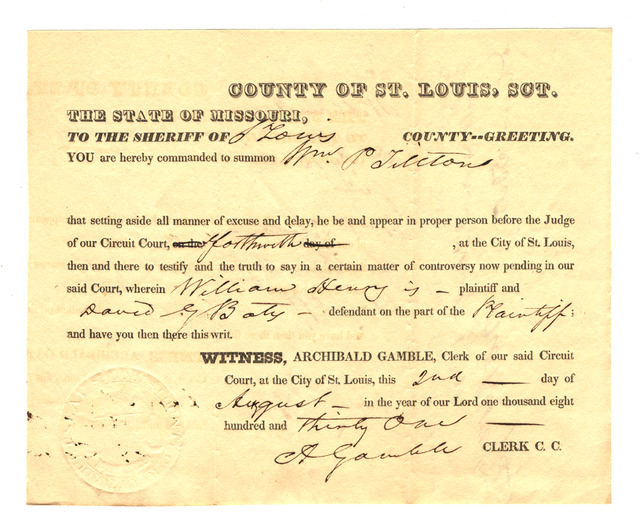 COUNTY OF ST. LOUIS, SCT.
THE STATE OF MISSOURI,
TO THE SHERIFF OF St Louis COUNTY--GREETING.
YOU are hereby commanded to summon Wm. P Tillton
that setting aside all manner of excuse and delay, he be and appear in proper person before the Judge
of our Circuit Court, on the forthwith day of , at the City of St. Louis,
then and there to testify and the truth to say in a certain matter of controversy now pending in our
said Court, wherein William Henry is – plaintiff and
David G Bates – defendant on the part of the Plaintiff;
and have you then there this writ.
WITNESS, ARCHIBALD GAMBLE, Clerk of our said Circuit
Court, at the City of St. Louis, this 2nd — day of
August – in the year of our Lord one thousand eight
hundred and thirty One
A Gamble CLERK C. C.